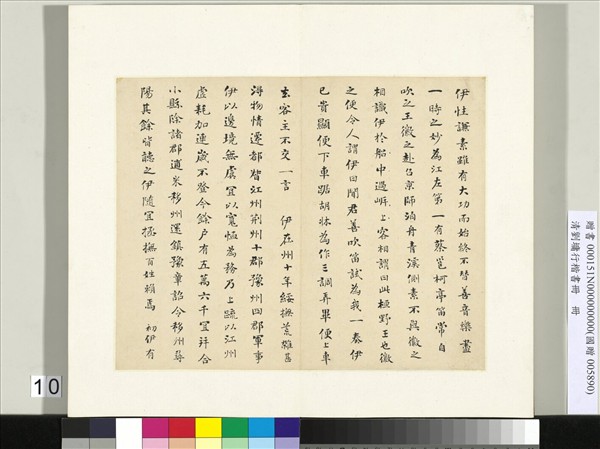 伊性謙素雖有大功而始終不替善音樂盡
一時之妙為江左第一有蔡邕柯亭笛常自
吹之王徽之赴召京師泊舟青溪側素不與徽之
相識伊於船中過岸上客相謂曰此桓野王也徽
之便令人謂伊曰聞君善吹笛試為我一奏伊
已貴顯便下車踞胡牀為作三調弄畢便上車
去客主不交一言 伊在州十年綏撫荒雜甚
得物情遷都督江州荊州十郡豫州四郡軍事
伊以邊境無虞宜以寬恤為務乃上疏以江州
虛耗加連歲不登今餘戶有五萬六千宜并合
小縣除諸郡逋米移州還鎮豫章詔令移州尋
陽其餘皆聽之伊隨宜拯撫百姓賴焉 初伊有
贈書 000151N000000000(國贈 005890)
清劉墉行楷書冊 冊
10